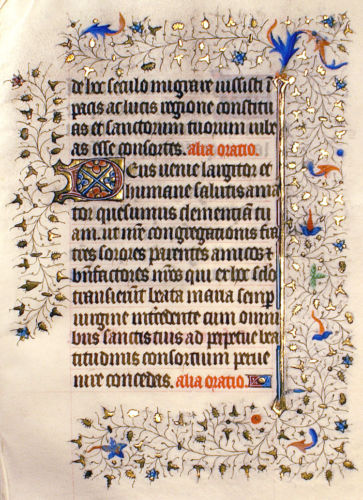 de hoc seculo migrare iussisti i
pacis ac lucis regione constitu
as et sanctorum tuorum iube
as esse consortes. alia oratio.
Deus uenie largitor et
humane salutis ama
tor quesumus clementiam tu
am. ut nře congregationis fra
tres sorores parentes amicos ⁊
bñfactores nřos qui ex hoc sclo
transierūt beata maria semp
uirgine intercedente cum omni
bus sanctis tuis ad perpetue bea
titudinis consortium perue
nire concedas. alia oratio.